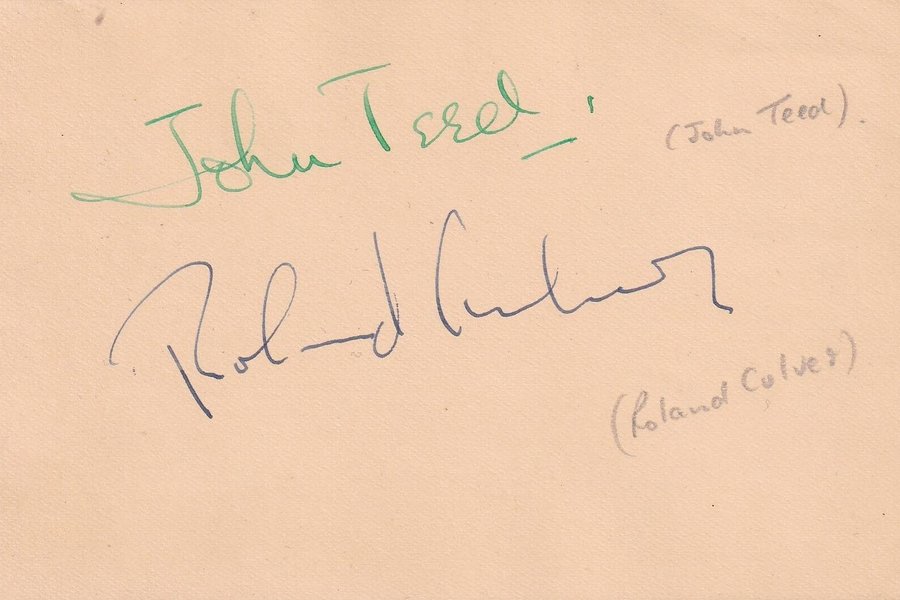 John Teed.
(John Teed).
Roland Culver
(Roland Culver)